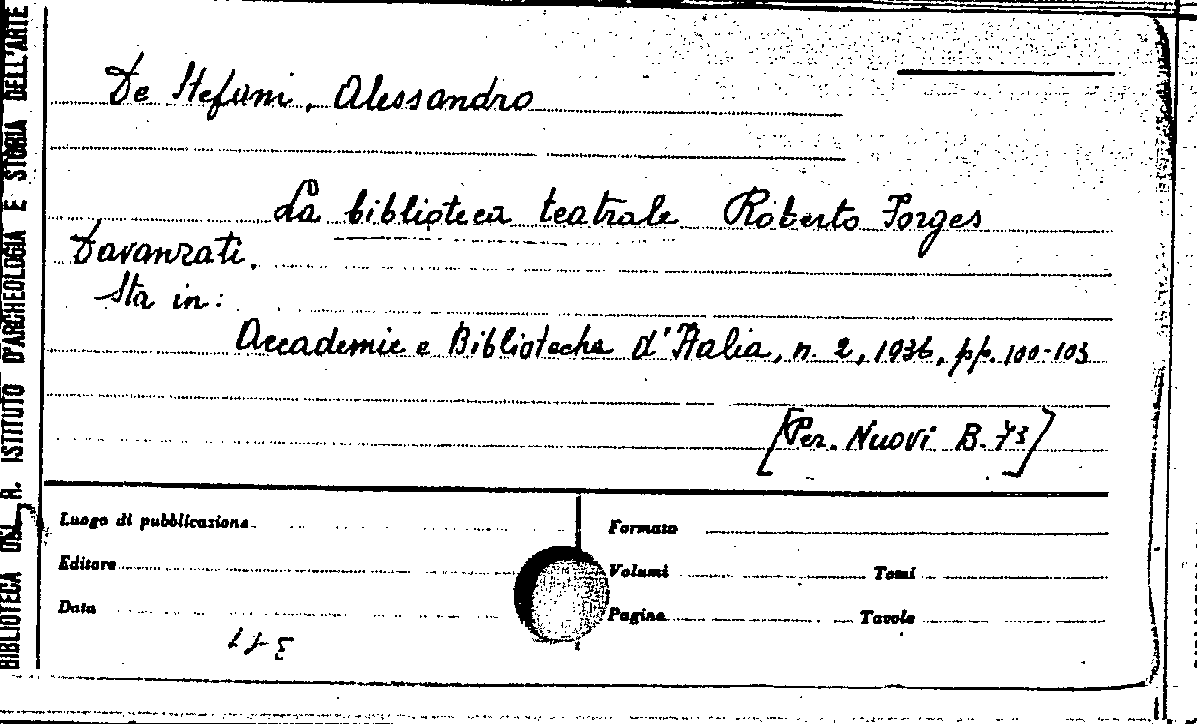 BIBLIOTECA DEL R. ISTITUTO D'ARCHEOLOGIA E STORIA DELL'ARTE
De Stefani, Alessandro
La biblioteca teatrale Roberto Forges
Davanzati.
Sta in:
Accademie e Biblioteche d'Italia, n. 2, 1936, pp. 100-103
[Per. Nuovi B. 73]
Luogo di pubblicazione
Formato
Editore
Volumi
Tomi
Data
Pagine
Tavole